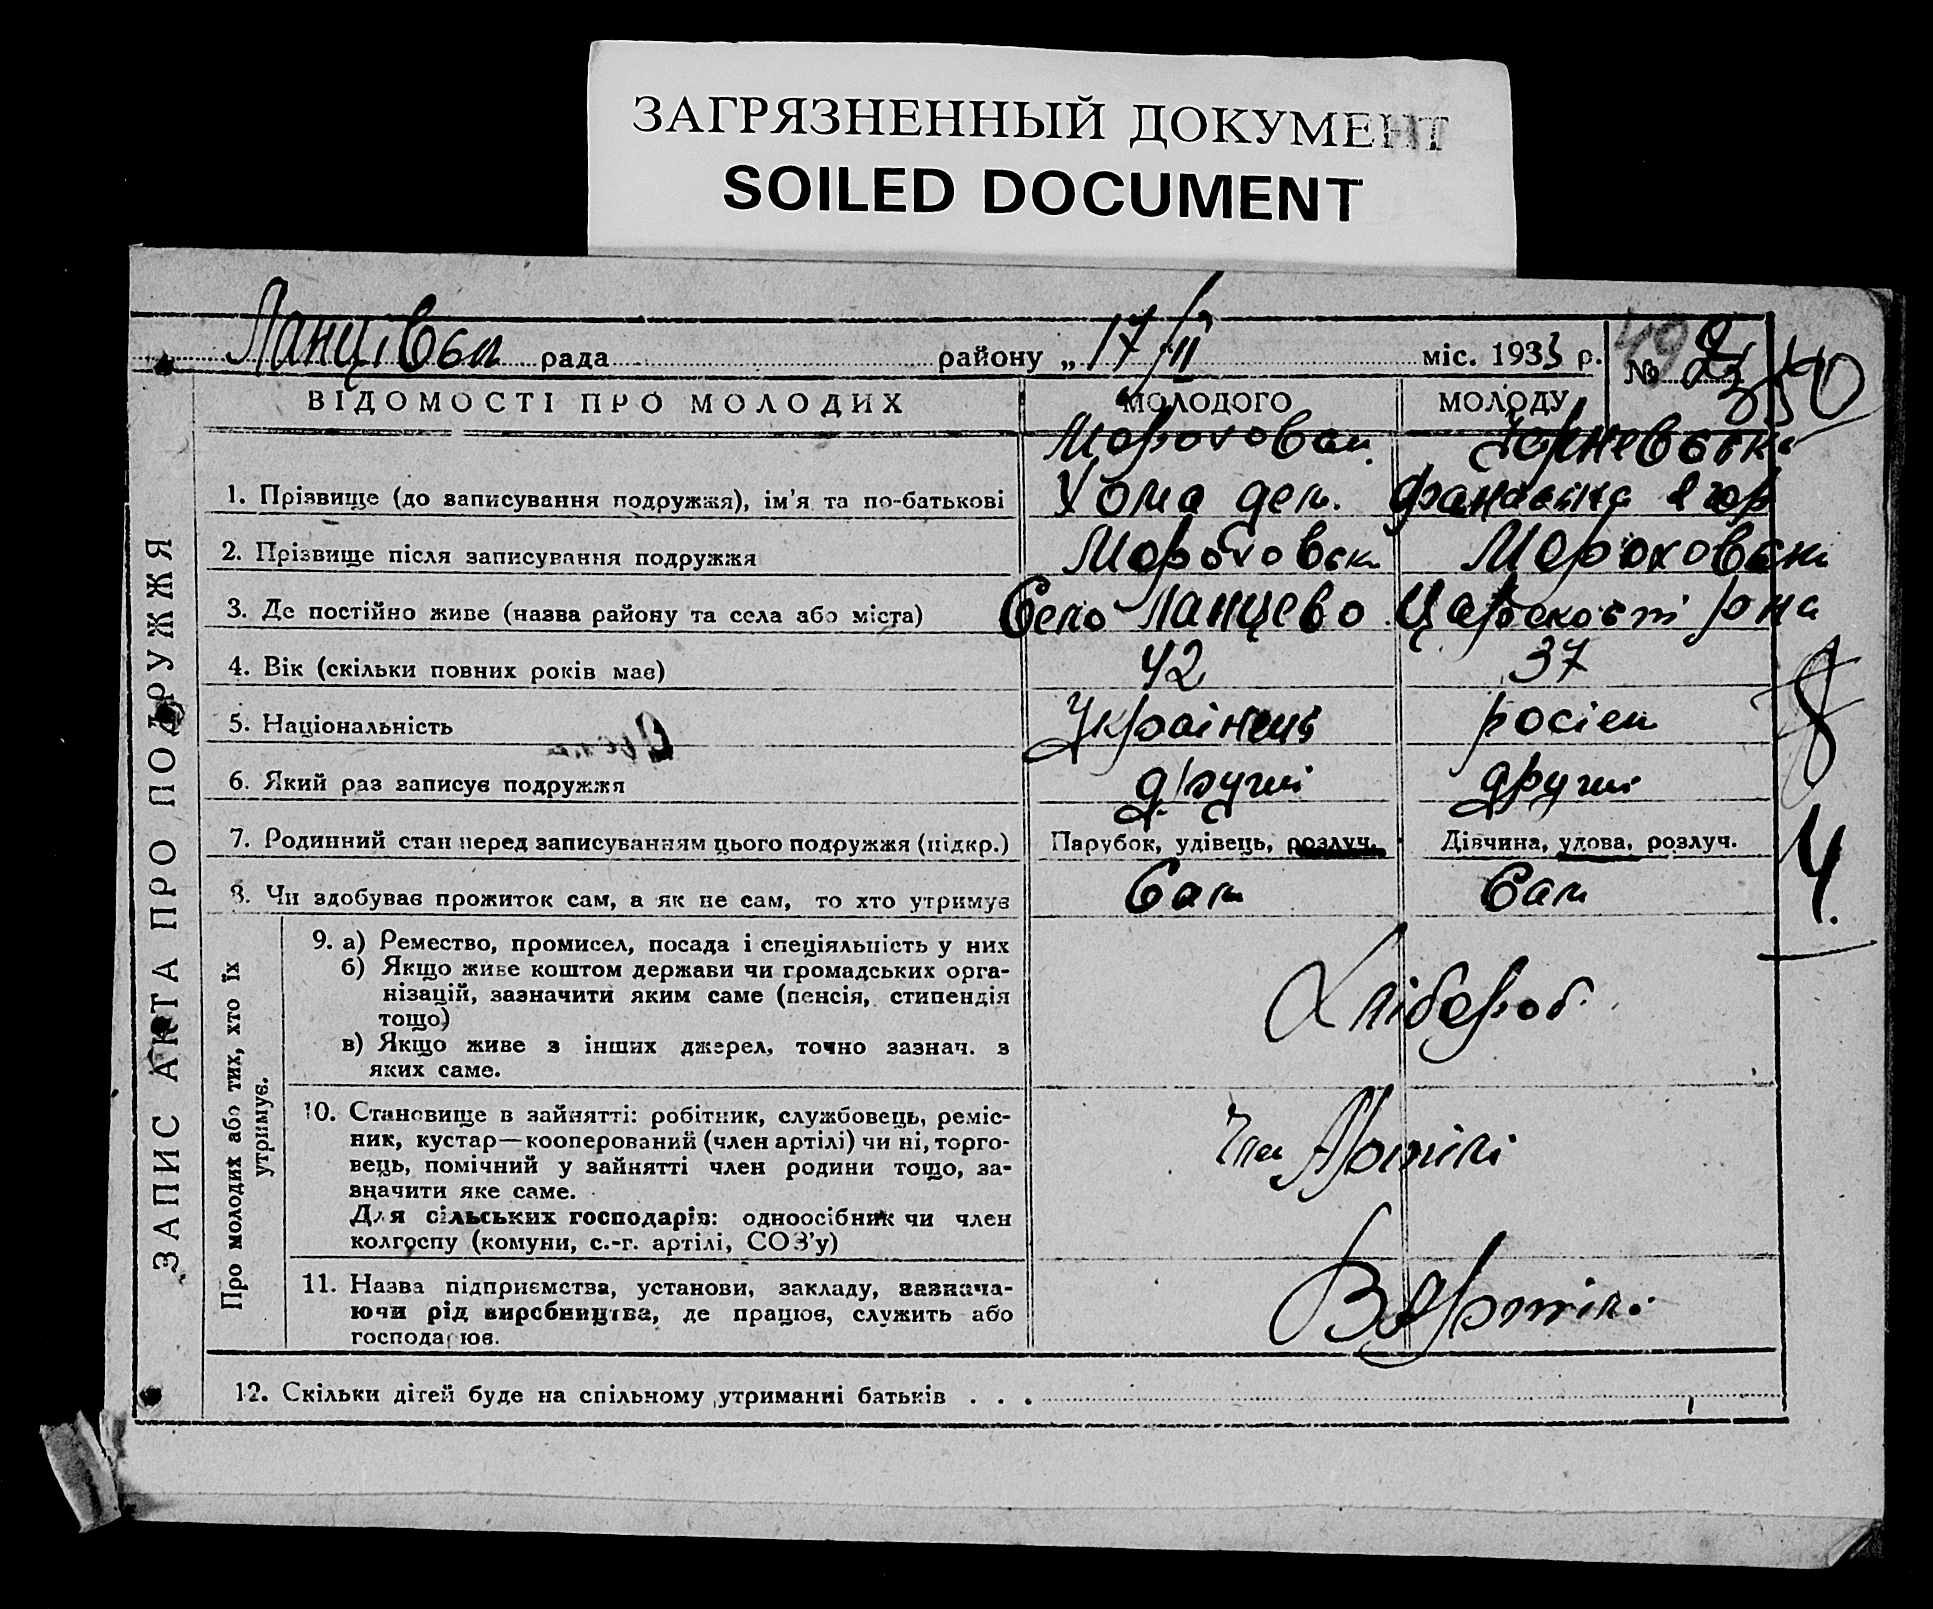 ЗАГРЯЗНЕННЫЙ ДОКУМЕНТ
SOILED DOCUMENT
Ланцівськ рада району „ 17/ІІ міс. 1933 р. №
ВІДОМОСТІ ПРО МОЛОДИХ МОЛОДОГО МОЛОДУ
1. Прізвище (до записування подружжя), ім'я та по-батькові Хома
2. Прізвище після записування подружжя Мороховськ Мороховськ
3. Де постійно живе (назва району та села або міста) Село Ланцево рна
4. Вік (скільки повних років має) 42 37
5. Національність Українець росіен
6. Який раз записує подружжя другий другий
7. Родинний стан перед записуванням цього подружжя (підкр.) Парубок, удівець, розлуч. Дівчина, удова, розлуч.
8. Чи здобуває прожиток сам, а як не сам, то хто утримує Сам Сам
ЗАПИС АКТА ПРО ПОДРУЖЖЯ
Про молодих або тих, хто їх
утримує.
9. а) Ремество, промисел, посада і спеціяльність у них
б) Якщо живе коштом держави чи громадських орга-
нізацій, зазначити яким саме (пенсія, стипендія
тощо)
в) Якщо живе з інших джерел, точно зазнач. з
яких саме.
Хлібороб
10. Становище в зайнятті: робітник, службовець, реміс-
ник, кустар—кооперований (член артілі) чи ні, торго-
вець, помічний у зайнятті член родини тощо, за-
значити яке саме.
Для сільських господарів: одноосібник чи член
колгоспу (комуни, с.-г. артілі, СОЗ'у)
Член Артілі
11. Назва підприємства, установи, закладу, зазнача-
ючи рід виробництва, де працює, служить або
господарює.
В Артілі
12. Скільки дітей буде на спільному утриманні батьків . . .
8
4.